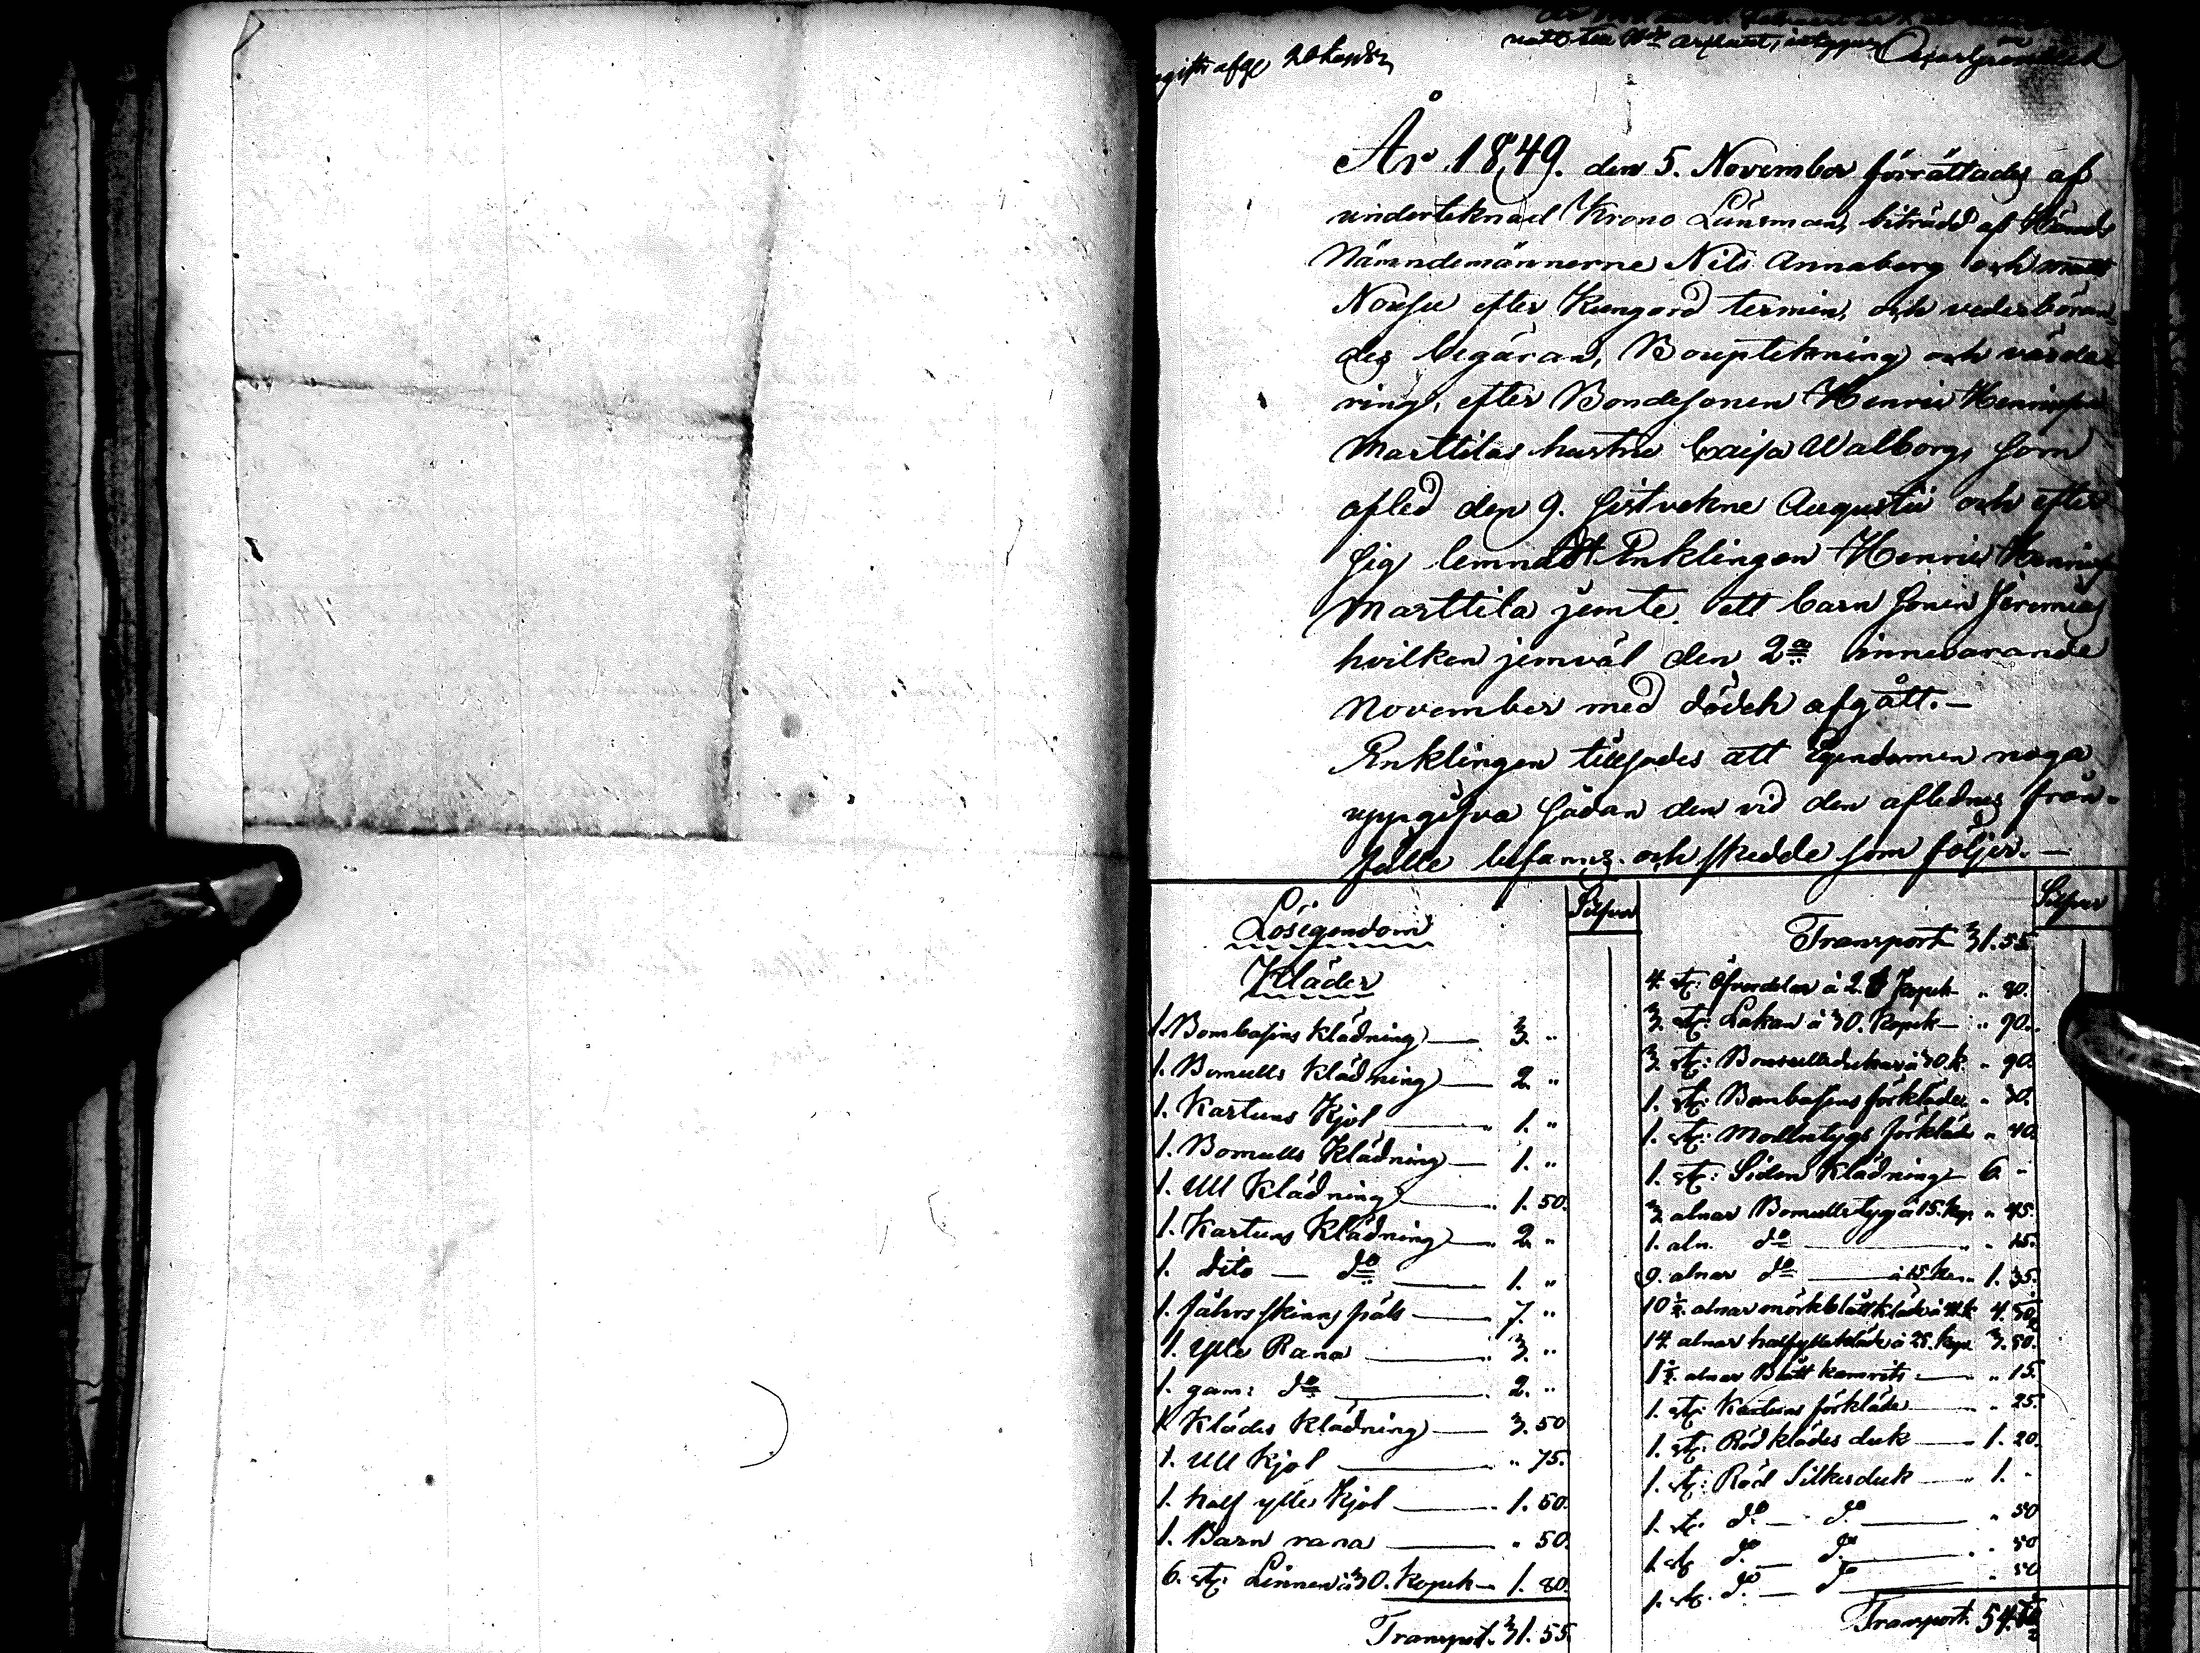 År 1849. den 5. November förrättades af
underteknad Krono Länsman, biträdd af Härads
Nämndemännerne Nils Annaberg och Matts
Norsu efter Kungord termin, och vederböran-
des begäran, Bouptekning och värde-
ring, efter Bondesonen Henric Henricson
Marttilas hustru Caisa Walborg, som
afled den 9. sistvekne Augustii och efter
sig lemnadt Enklingen Henric Henrics
Marttila jemte ett barn Sonen Jeremias
hvilken jemväl den 2a innevarande
November med döden afgått.—
Enklingen tillsades att Egendomen noga
uppgifva sådan den vid den aflednes från-
fälle befanns och skedde som följer.—
Lösegendom
Silfver
Kläder
1. Bombasins Klädning — 3. "
1. Bomulls Klädning — 2. "
1. Kartuns Kjol — 1. "
1. Bomulls Klädning — 1. "
1. Ull Klädning — 1. 50.
1. Kartuns Klädning — 2. "
1. Dito — do — 1. "
1. Fåhrs skinns päls — 7. "
1. Ylle Rana — 3. "
1. gam: do — 2. "
1. Klädes Klädning — 3. 50
1. Ull Kjol — " 75.
1. half ylle Kjol — 1. 50.
1. Barn rana — " 50.
6. st: Linnen à 30. Kopek — 1. 80.
Transport. 31. 55.
Silfver
Transport 31. 55.
4. st: Öfverdelar à Kopek " 80.
3. st: Lakan à 30. Kopek — " 90.
3. st: Bomullsdukar à 30 k. " 90.
1. st: Bombasins förkläde " 30.
1. st: Mollntygs förkläde " 40.
1. st: Siden Klädning — 6. "
3. alnar Bomullstyg à 15. kop. " 45.
1. aln. do — " 15.
9. alnar do — à 15. kop. 1. 35.
10 ½. alnar mörkblått kläde à k. 4.
14. alnar halfylle kläde à 25. kop. 3. 50.
1 ½. alnar Blått kamrits — " 15.
1. st: Kartuns förkläde — " 25.
1. st: Röd klädes duk — 1. 20.
1. st: Röd Silkesduk — 1. "
1. st: do — do — " 50
1. st: do — do — " 50
1. st: do — do — " 50
Transport. 54.